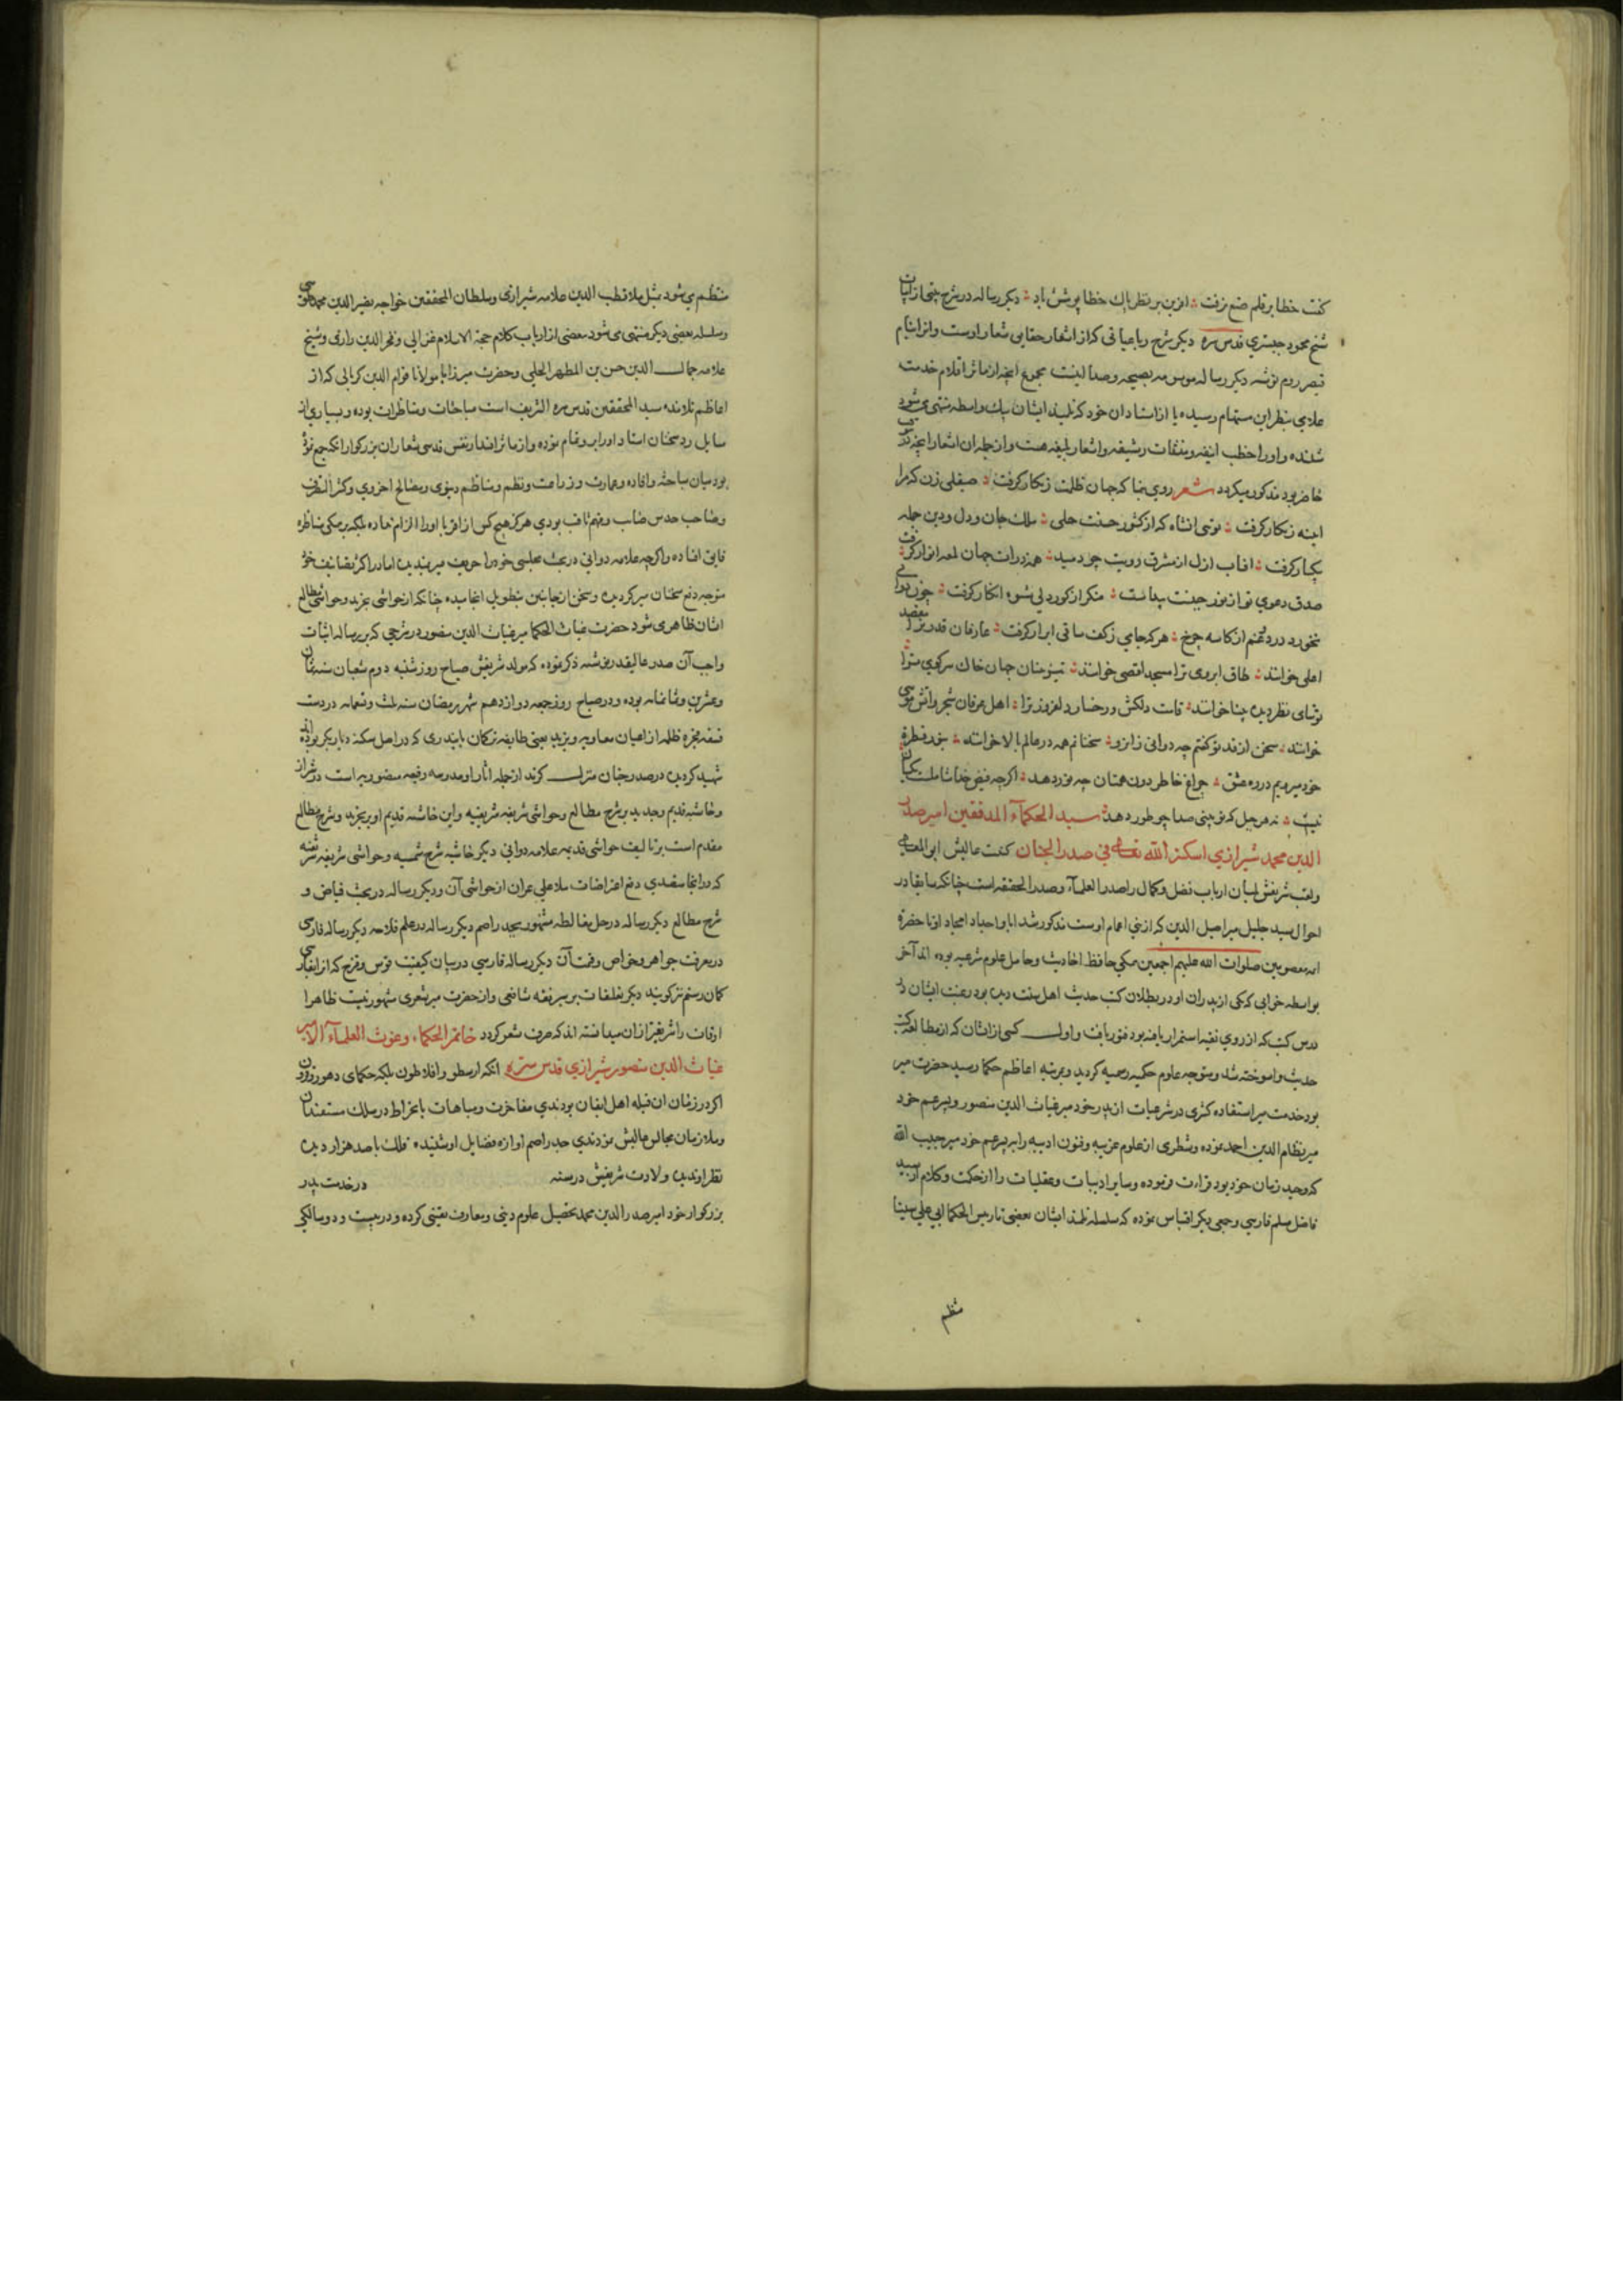 کفت خطا بر قلم صنع نرفت افرین بر نظر پاک خطا پوشش باد دیکر رساله در شرح بیتی از ابیات
شیخ محمود جبستری قدس سره دیکر شرح رباعیاتی که از اشعار حقایق شعار اوست و انرا بنام
قیصر روم نوشته دیکر رساله موسومه بصیحه و صدا اینست مجموع انچه از ماثر اقلام خدمت
علامی بنظر این مستهام رسیده یا از استادان خود که تلمیذ ایشان بیک واسطه منتهی می شود
شنیده و او را خطب انیقه و منشآت رشیقه و اشعار بلیغه هست و از جمله ان اشعار انچه
حاضر بود مذکور میکردد شعر روی بنما که جهان ظلمت زنکار کرفت صیقلی زن که مرا
اینه زنکار کرفت تویی انشاه که از کشور حسنت حلی ملک جان و دل و دین جمله
بیکبار کرفت افتاب ازل از مشرق رویت چو دمید همه ذرات جهان لمعه انوار کرفت
صدق دعوی تو از نور جبینت پیداست منکر از کوردلی شیوه انکار کرفت چون دوانی
نخورد دردی غم از کاسه چرخ هرکه جامی زکف ساقی ابرار کرفت عارفان قدر ترا مقصد
اعلی خوانند طاق ابروی ترا مسجد اقصی خوانند نسیتومنان جهان خاک سر کوی ترا
توتیای نظر دیده بینا خوانند قامت دلکش و رخسار دلفروز ترا اهل عرفان شجر و اتش موسی
خوانند سخن از قد تو کفتم چه دوانی زانرو سخنانم همه در عالم بالا خوانند
خود میرویم در ره عشق چراغ خاطر دون همتان چه نور دهد اکرچه فیض خدا شاملست یکسان
نیست نه هر جبل که تو بینی صدا چو طور دهد سید الحکمآء المدققین امیر صدر
الدین محمد شیرازی اسکنه الله تعالی فی صدر الجنان کنیت عالیش ابو المعالی
ولقب شریفش لسان ارباب فضل و کمال را صدر العلمآء و صدر الحقیقه است چنانکه سابقا در
احوال سید جلیل میر اصیل الدین که از بنی اعمام اوست مذکور شد ابا و اجداد امجاد او تا حضره
ائمه معصومین صلوات الله علیهم اجمعین همکی حافظ احادیث و حامل علوم شرعیه بوده اند آخر
بواسطه خوابی که یکی از پدران او در بطلان کتب حدیث اهل سنت دیده بود رغبت ایشان در
درس کتب که از روی تقیه استمرار یافته بود فتور یافت و اول کسی از ایشان که از مطالعه کتب
حدیث وا سوخته شد و متوجه علوم حکمیه رسمیه کردید و بمرتبه اعاظم حکما رسید حضرت میر
بود خدمت میر استفاده کثری در شرعیات از پدر خود میر غیاث الدین منصور و پسر عم خود
میر نظام الدین احمد نموده و شطری از علوم عربیه و فنون ادبیه را بر پسر عم خود میر حبیب الله
که وحید زمان خود بود قراءت فرموده و سایر ادبیات و عقلیات را از حکمت و کلام از سید
فاضل مسلم فارسی و جمعی دیکر اقتباس نموده که سلسله تلمذ ایشان بعضی تا رییس الحکما ابی علی سینا
منتظم
منتظم می شود مثل ملا قطب الدین علامه شیرازی و سلطان المحققین خواجه نصیر الدین محمد طوسی
و سلسله بعضی دیکر منتهی می شود ببعضی از ارباب کلام حجة الاسلام غزالی و فخر الدین رازی و شیخ
علامه جمال الدین حسن بن المطهر الحلی و حضرت میر را با مولانا قوام الدین کربالی که از
اعاظم تلامذه سید المحققین قدس سره الشریف است مباحثات و مناظرات بوده و بسیاری از
مسایل رد سخنان استاد او را بر او تمام نموده و از ماثر اقتدار نفس قدسی شعار ان بزرکوار انکه جمع نموده
بود میان مباحثه و افاده و عمارت و زراعت و نظم مناظم دنیوی و مصالح اخروی و کثیر النظر
و صاحب حدس صایب و فهم ثاقب بودی هرکز هیچکس از اقربا او را الزام نداده بلکه بر همکی مناظره
فایق افتاده و اکرچه علامه دوانی در بحث مجلسی خود را حریف میر ندیده اما در اکثر تصانیف خود
متوجه دفع سخنان میر کردیده و سخن از جانبین بتطویل انجامیده چنانکه از حواشی تجرید و حواشی مطالع
ایشان ظاهر می شود حضرت غیاث الحکما میر غیاث الدین منصور در شرحی که بر رساله اثبات
واجب آن صدر عالیقدر نوشته ذکر نموده که مولد شریفش صباح روز شنبه دوم شعبان سنه ثمان
و عشرین و ثمانمائه بوده و در صباح روز جمعه دوازدهم شهر رمضان سنه ثلث و تسعمائه در دست
فسقه فجره ظلمه از اعیان معاویه و یزید یعنی طایفه ترکمان بایندری که در اصل سکنه دیار بکر بوده اند
شهید کردیده در صدر جنان منزل کزید از جمله اثار او مدرسه رفیعه منصوریه است در شیراز
و حاشیه قدیم و جدید بر شرح مطالع و حواشی شریفه شریفیه و این حاشیه قدیم او بر تجرید و شرح مطالع
مقدم است بر تالیف حواشی قدیمه علامه دوانی دیکر حاشیه شرح شمسیه و حواشی شریفیه شریفه
که در انجا متصدی دفع اعتراضات ملا علی عران از حواشی آن و دیکر رساله در بحث فیاض و
شرح مطالع دیکر رساله در حل مغالطه مشهور بجذر اصم دیکر رساله در علم فلاحه دیکر رساله فارسی
در معرفت جواهر و خواص و قیمت آن دیکر رساله فارسی در بیان کیفیت قوس و قزح که از انفارسی
کمان رستم نیز کویند دیکر تعلیقات بر تیسیر فقه شافعی و از حضرت میر شعری مشهور نیست ظاهرا
اوقات را شریفتر از ان میدانسته اند که صرف شعر کردد خاتم الحکمآء و غوث العلمآء الامیر
غیاث الدین منصور شیرازی قدس سره انکه ارسطو و افلاطون بلکه حکمای دهور و قرون
اکر در زمان ان قبله اهل ایقان بودندی مفاخرت و مباهات بانخراط در سلک مستفیدان
و ملازمان مجالس عالیش نمودندی جذر اصم اوازه فضایل او شنیده فلک با صد هزار دیده
نظر او ندیده ولادت شریفش در سنه در خدمت پدر
بزرکوار خود امیر صدر الدین محمد تحصیل علوم دینی و معارف یقینی کرده و در بیست و دو سالکی